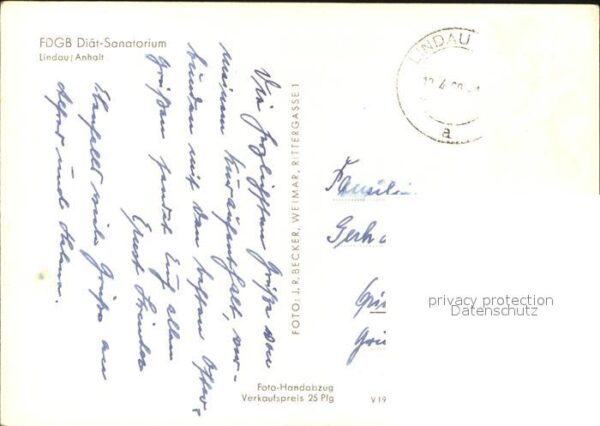 FDGB Diät-Sanatorium
Lindau/Anhalt
Die herzlichsten Grüße von
meinem Kuraufenthalt, ver-
bunden mit den besten Oster-
grüßen sendet Euch allen
Ernst
Ebenfalls viele Grüße an
Alfred und Helene.
FOTO: J.R.BECKER, WEIMAR, RITTERGASSE 1
LINDAU
a
Familie
Gerha
privacy protection
Datenschutz
Foto-Handabzug
Verkaufspreis 25 Pfg
V 19